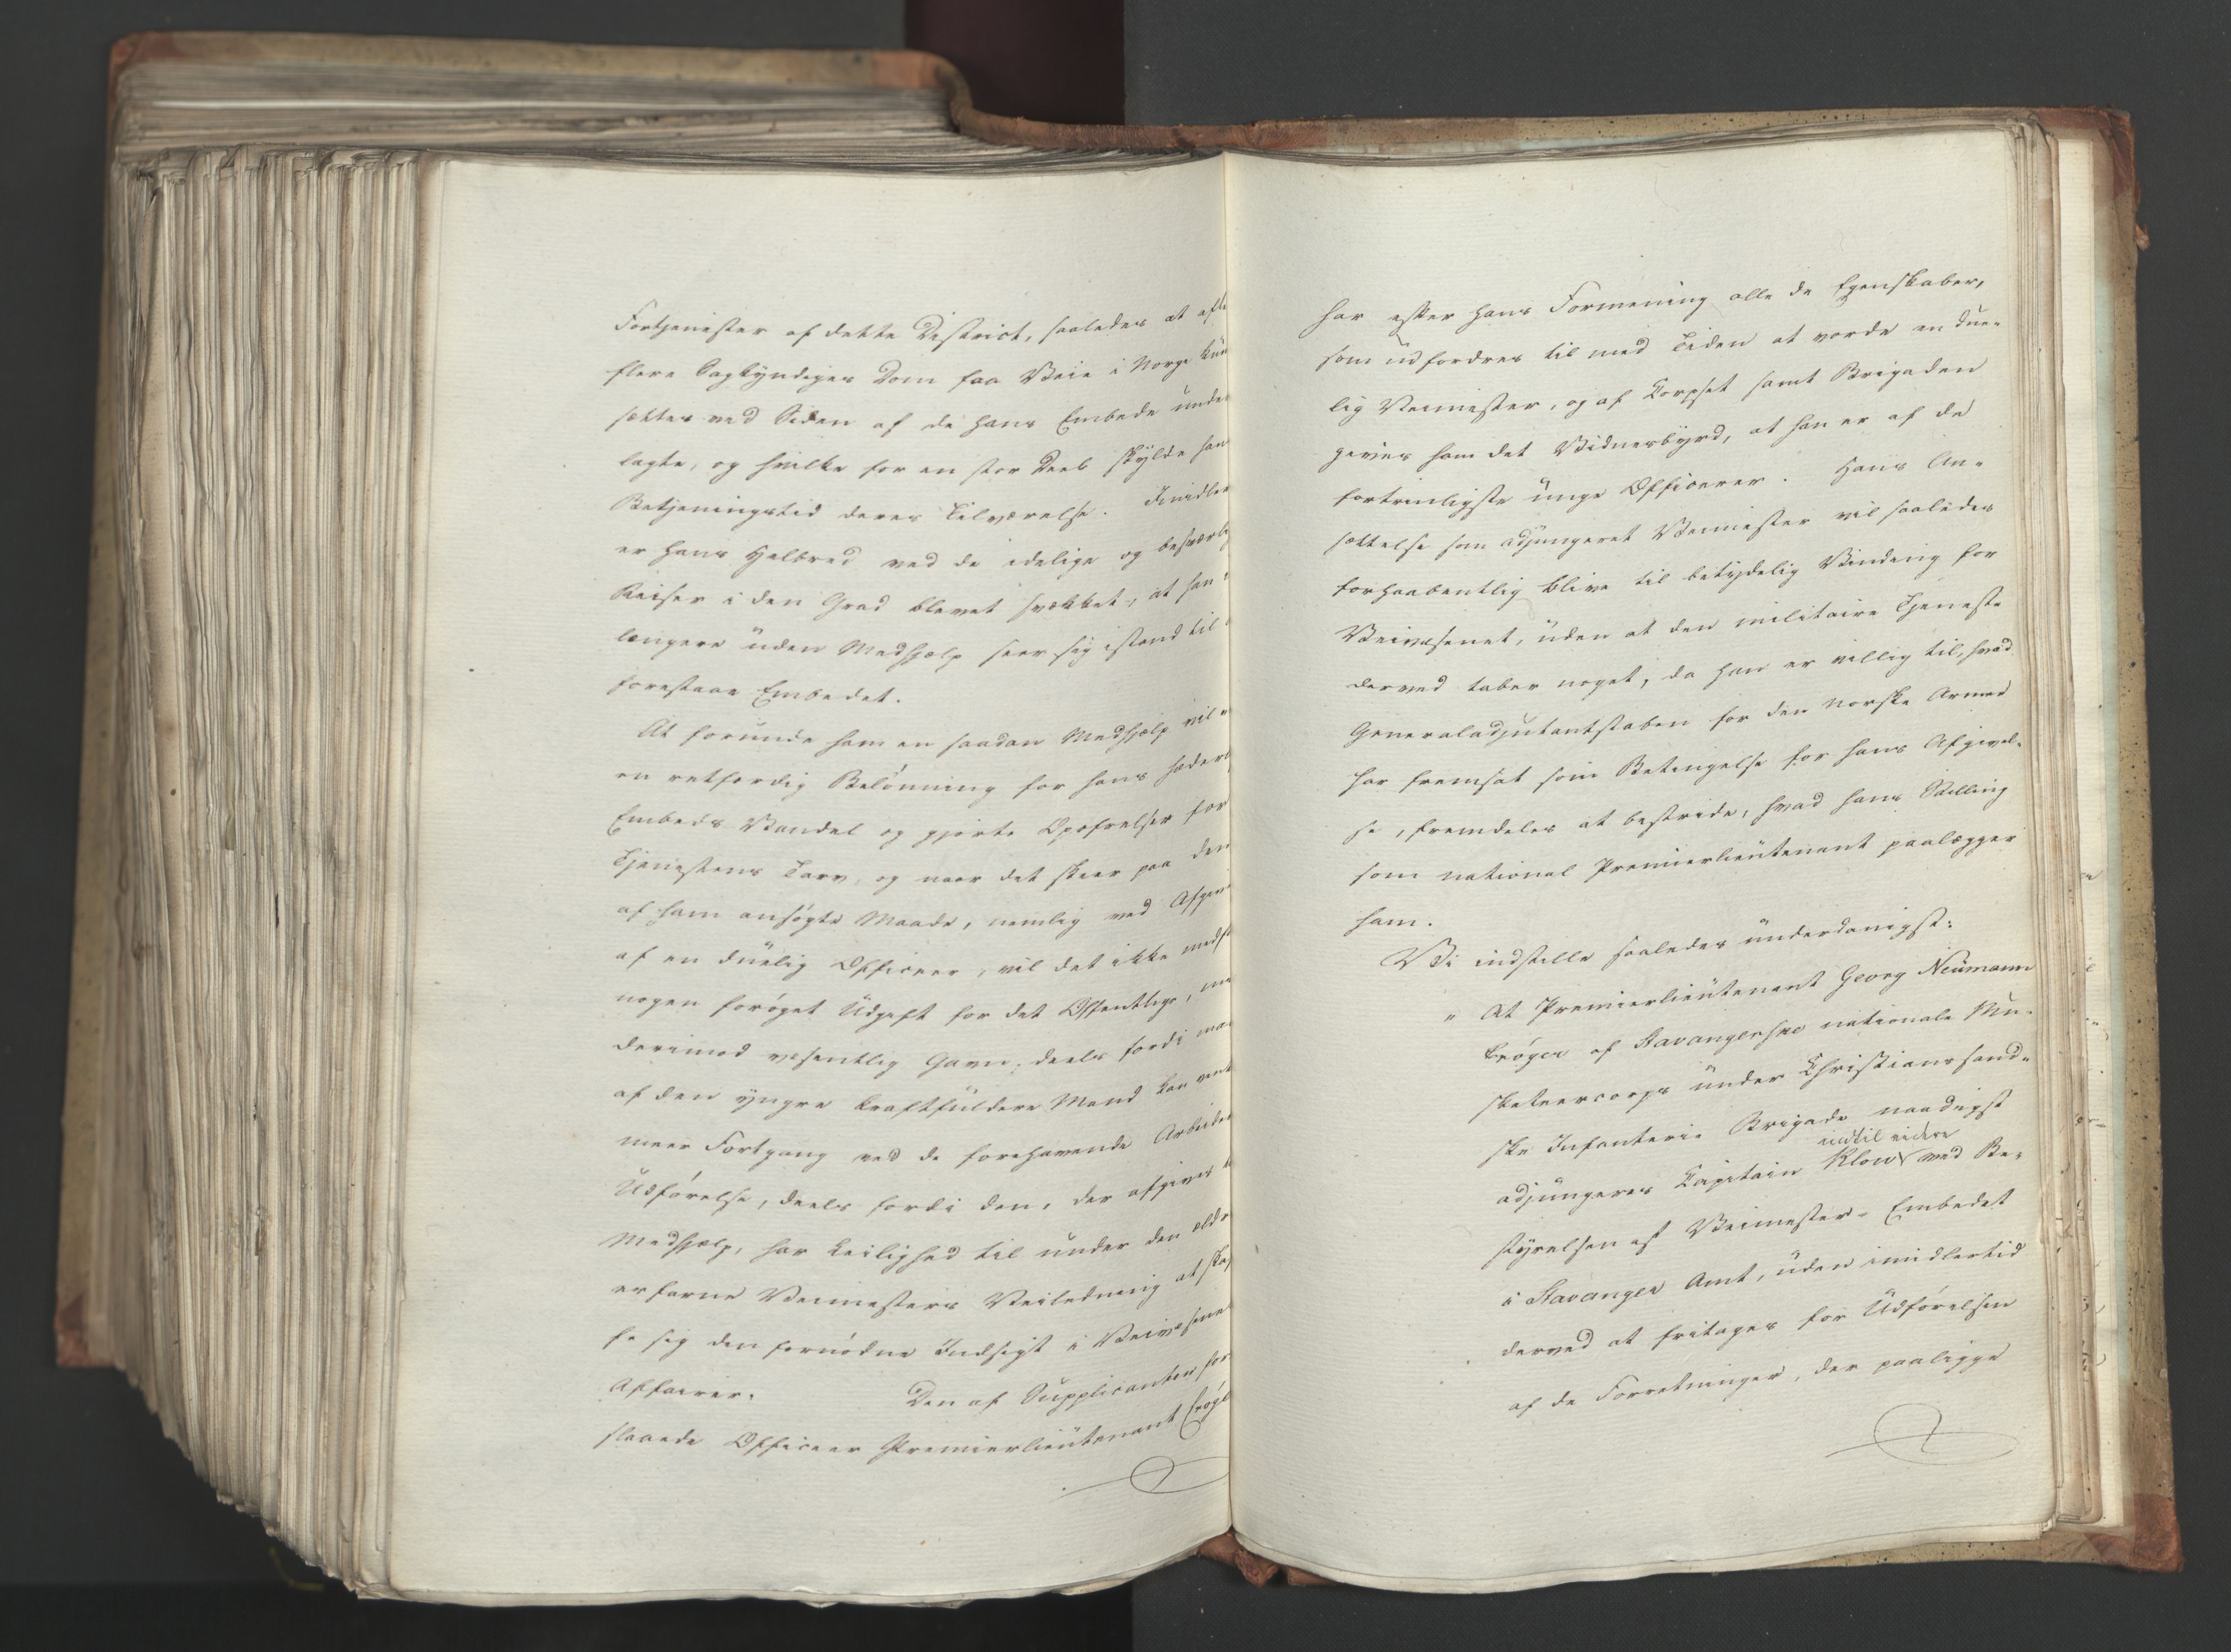 Fortjenester af dette District, saaledes at efte
flere Sagkyndiges Dom faa Veie i Norge kun
sættes ved Siden af de hans Embede under
lagte, og hvilke for en stor Deel skylde han
Betjeningstid deres Tilværelse. Imidler
er hans Helbred ved de idelige og besværlig
Reiser i den Grad blevet svækket, at han
længere uden Medhjælp seer sig istand til
forestaae Embedet.
At forunde ham en saadan Medhjælp vil
en retfærdig Belønning for hans hæderl
Embeds Vandel og gjorte Opofrelser for
Tjenestens Tarv, og naar det skeer paa den
af ham ansøgte Maade, nemlig ved Afgiv
af en duelig Officeer, vil det ikke medf
nogen forøget Udgift for det Offentlige, me
derimod væsentlig Gavn, deels fordi ma
af den yngre kraftfuldere Mand kan vent
meer Fortgang ved de forehavende Arbeider
Udførelse, deels fordi den, der afgives
Medhjælp, har Leilighed til under den ældr
erfarne Veimesters Veiledning at skaf
fe sig den fornødne Indsigt i Veivæsene
Affairer. Den af Supplicanten for
slaaede Officeer Premierlieutenant Crøge
har efter hans Formening alle de Egenskaber,
som udfordres til med Tiden at vorde en due-
lig Veimester, og af Corpset samt Brigaden
gives ham det Vidnesbyrd, at han er af de
fortrinligste unge Officerer. Hans An-
sættelse som adjungeret Veimester vil saaledes
forhaabentlig blive til betydelig Vinding for
Veivæsenet, uden at den militaire Tjeneste
derved taber noget, da han er villig til, hvad
Generaladjutantstaben for den norske Armee
har fremsat som Betingelse for hans Afgivel-
se, fremdeles at bestride, hvad hans Stilling
som national Premierlieutenant paalægger
ham.
Vi indstille saaledes underdanigst:
" At Premierlieutenant Georg Neumann
Crøger af Stavangerske nationale Mu-
sketeercorps under Christianssand-
ske Infanterie Brigade naadigst
indtil videre
adjungeres Capitain Klow ved Be-
styrelsen af Veimester-Embedet
i Stavanger Amt, uden imidlertid
derved at fritages for Udførelsen
af de Forretninger, der paaligge